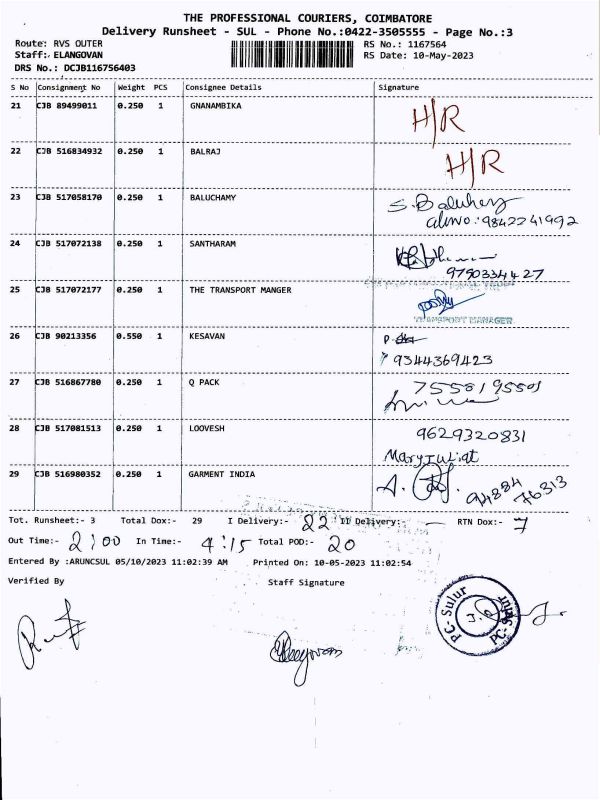 THE PROFESSIONAL COURIERS, COIMBATORE
Delivery Runsheet - SUL - Phone No.:0422-3505555 - Page No.:3
Route: RVS OUTER RS No.: 1167564
Staff: ELANGOVAN RS Date: 10-May-2023
DRS No.: DCJB116756403
S No Consignment No Weight PCS Consignee Details Signature
21 CJB 89499011 0.250 1 GNANAMBIKA H/R
22 CJB 516834932 0.250 1 BALRAJ H/R
23 CJB 517058170 0.250 1 BALUCHAMY S. Baluchamy
9842241992
24 CJB 517072138 0.250 1 SANTHARAM
9790334427
25 CJB 517072177 0.250 1 THE TRANSPORT MANGER
TRANSPORT MANAGER
26 CJB 90213356 0.550 1 KESAVAN P.
9344369423
27 CJB 516867780 0.250 1 Q PACK 7558195501
28 CJB 517081513 0.250 1 LOOVESH 9629320831
Mary Juliat
29 CJB 516980352 0.250 1 GARMENT INDIA A.
94884 76313
Tot. Runsheet:- 3 Total Dox:- 29 I Delivery:- 22 II Delivery:- — RTN Dox:- 7
Out Time:- 2:00 In Time:- 4:15 Total POD:- 20
Entered By :ARUNCSUL 05/10/2023 11:02:39 AM Printed On: 10-05-2023 11:02:54
Verified By Staff Signature
PC-Sulur
Elangovan